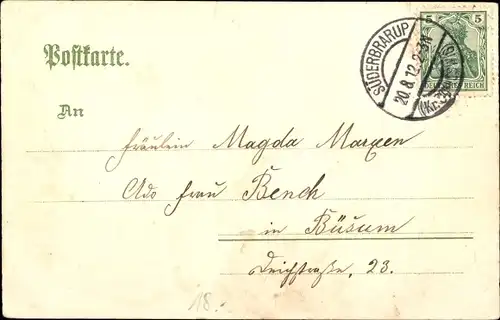 Postkarte.
5 5
SÜDERBRARUP
20.8.12.
DEUTSCHES REICH
An
Fräulein Magda Marxen
Adr. Frau Bench
in Büsum
Deichstraße, 23.
18.